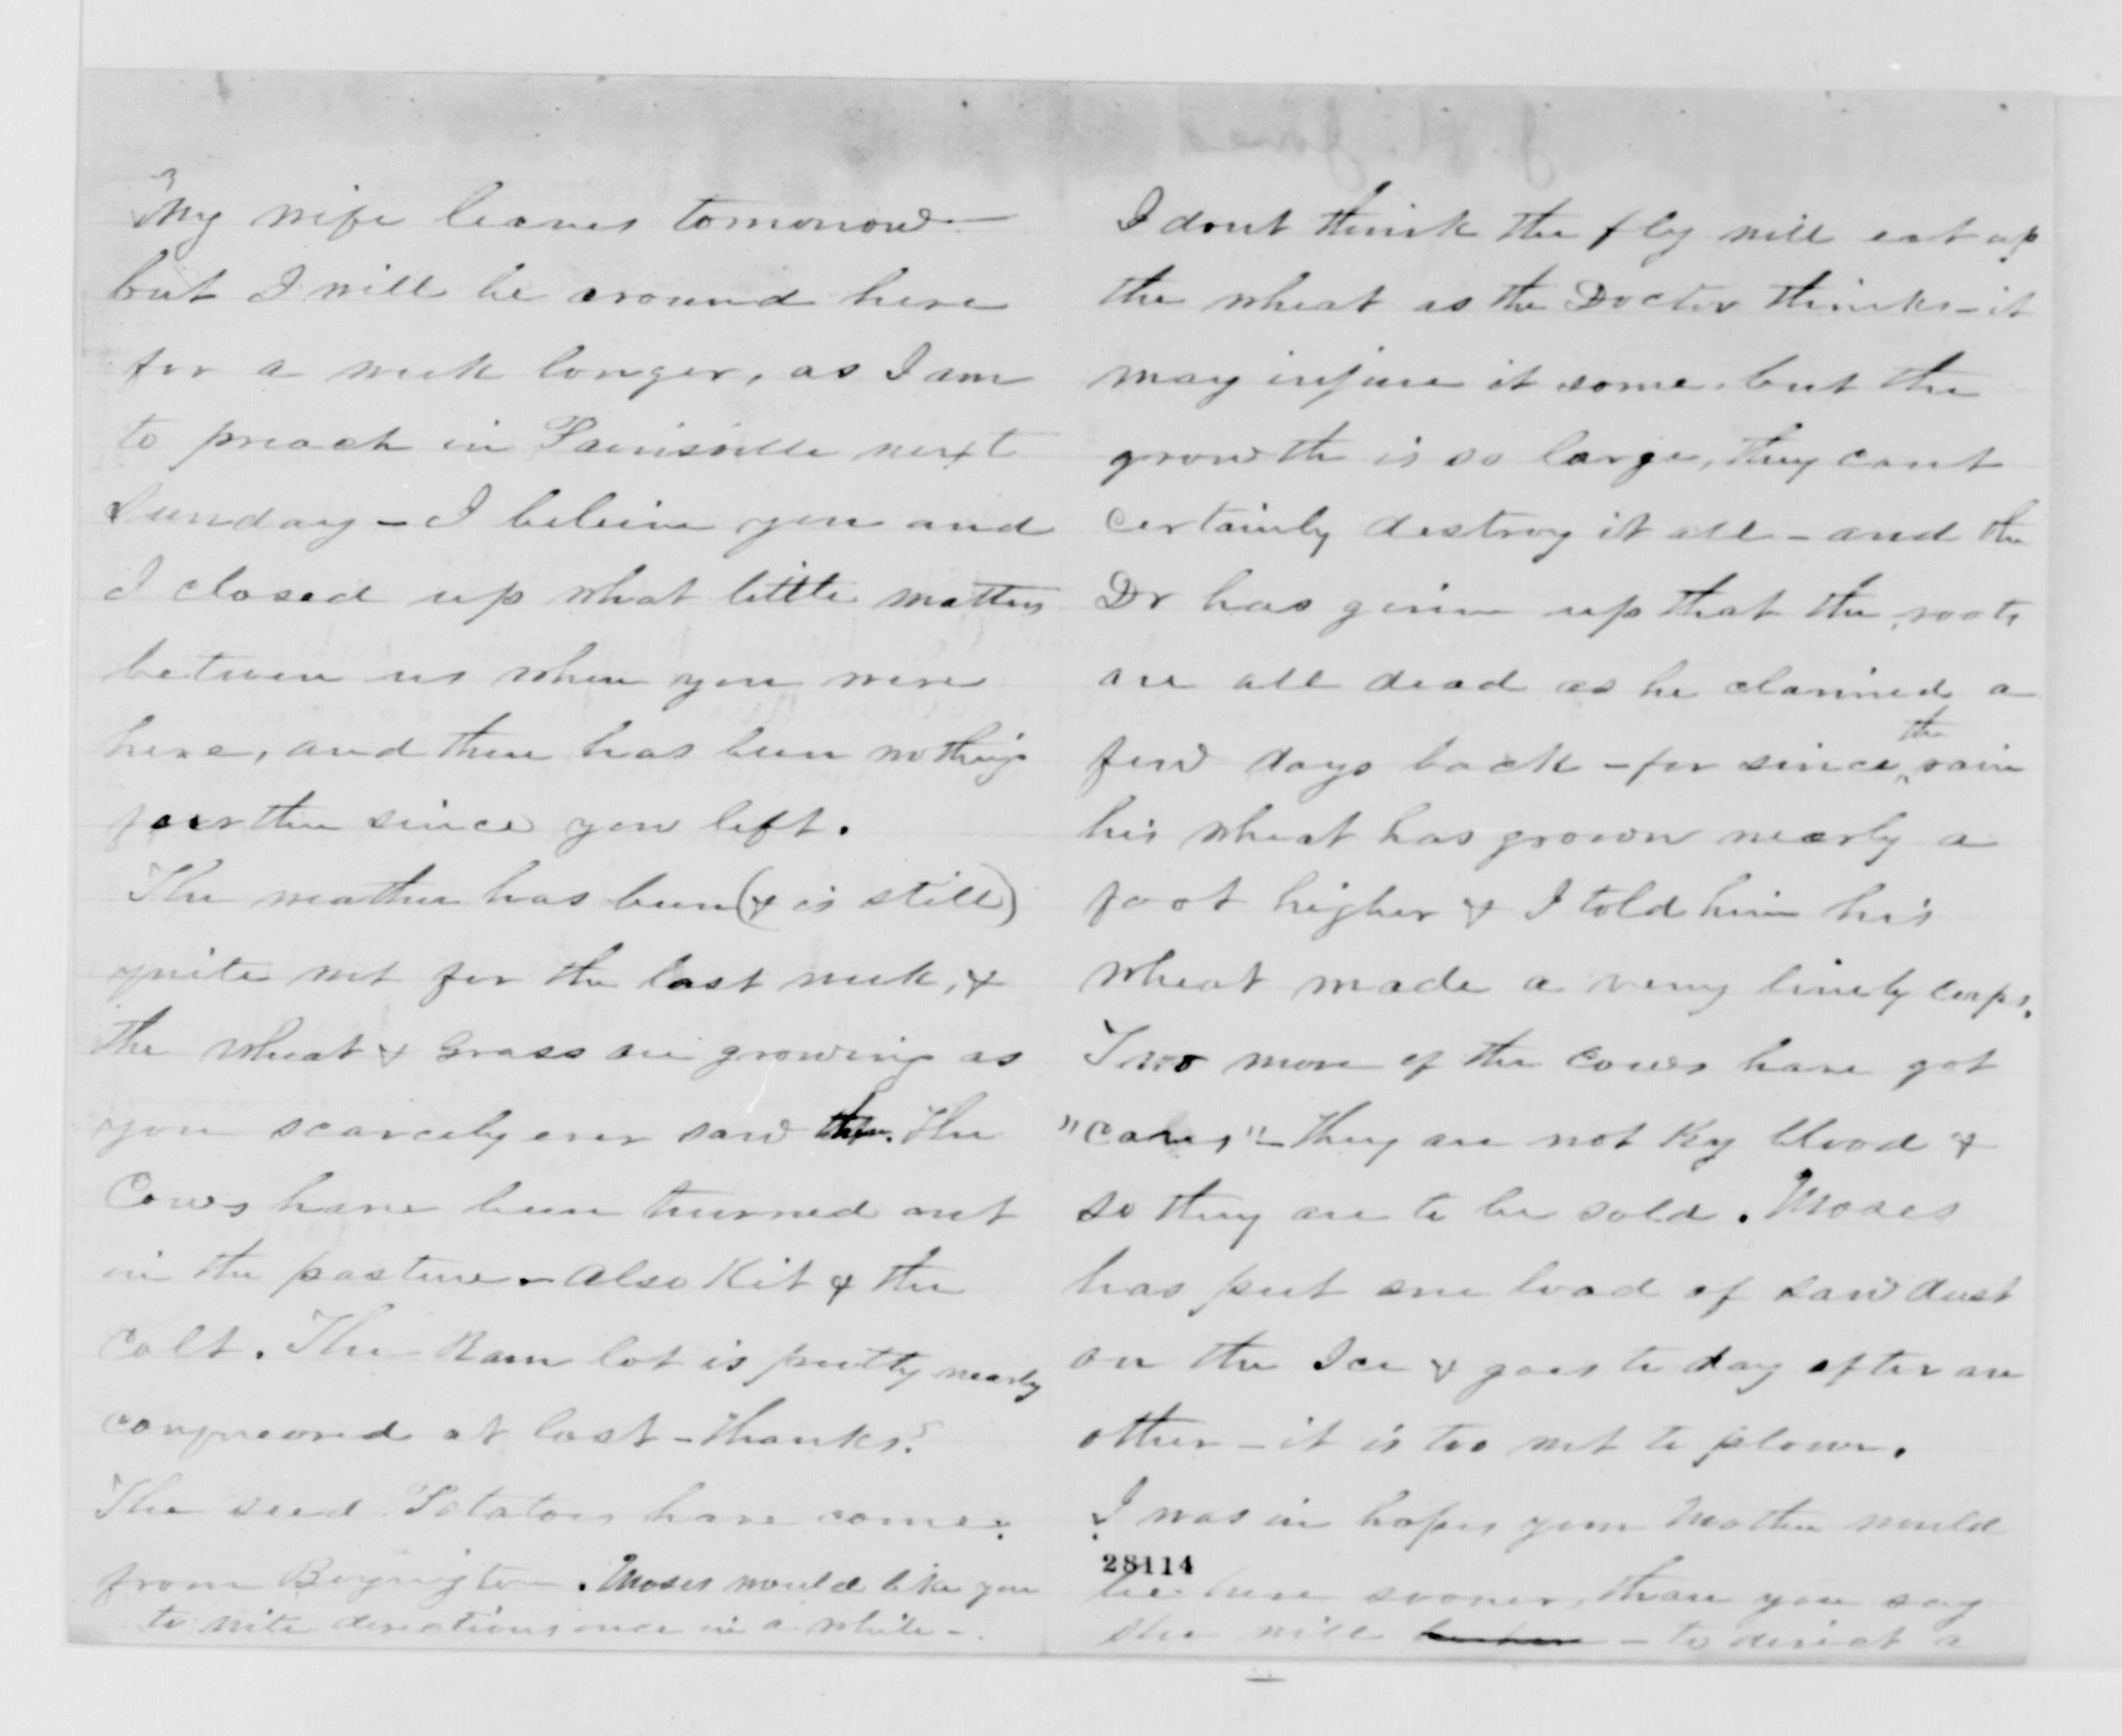 3
My wife leaves tomorrow—
but I will be around here
for a week longer, as I am
to preach in Painisville next
Sunday – I beleive you and
I closed up what little matters
between us when you were
here, and there has been nothing
fourther since you left.
The weather has been (& is still)
quite wet for the last week, &
the wheat & Grass are growing as
you scarcely ever saw . The
Cows have been turned out
in the pasture – Also Kit & the
Colt. The Ram lot is pretty nearly
conqueored at last – thanks!
The seed Potatoes have come
from Boynington. Moses would like you
to write directions once in a while –.
I dont think the fly will eat up
the wheat as the Doctor thinks – it
may injure it some, but the
growth is so large, they cant
certainly destroy it all – and the
Dr has given up that the roots
are all dead as he claimed a
few days back – for since the rain
his wheat has grown nearly a
foot higher & I told him his
wheat made a very lively corps.
Two more of the Cows have got
"Calves" – They are not Ky blood &
so they are to be sold. Moses
has put one load of saw dust
on the Ice & goes to day after an
other – it is too wet to plow.
I was in hopes your Mother would
28114
be here sooner, than you say
she will – to direct a
J. H. Jones